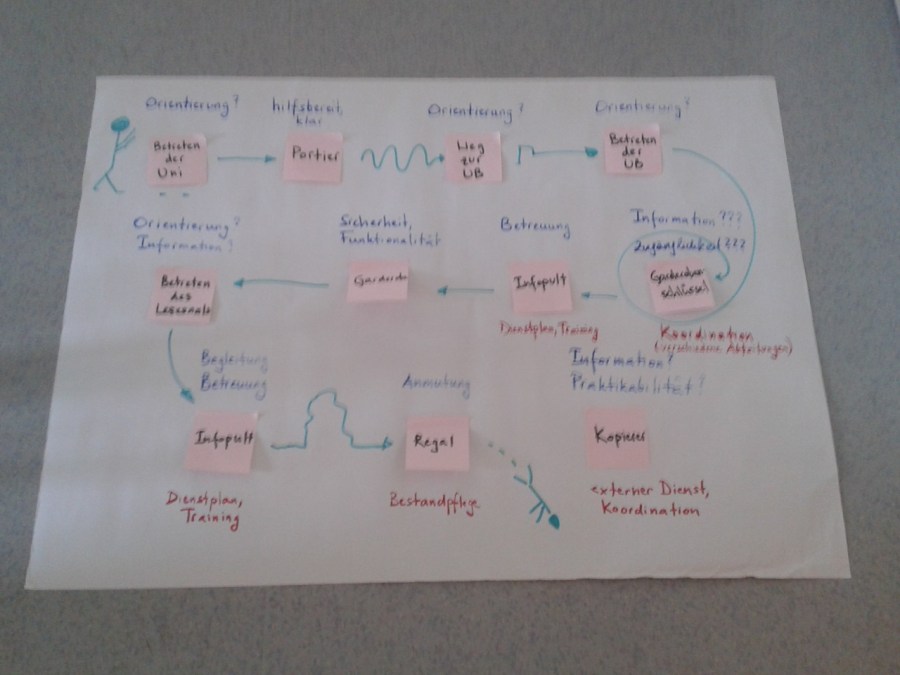 Orientierung?
hilfsbereit,
klar
Orientierung?
Orientierung?
Betreten
der
Uni
Portier
Weg
zur
UB
Betreten
der
UB
Orientierung?
Information?
Sicherheit,
Funktionalität
Betreuung
Information???
Zugänglichkeit???
Betreten
des
Lesesaals
Garderobe
Infopult
Garderoben
schlüssel
Dienstplan, Training
Koordination
(verschiedene Abteilungen)
Begleitung
Betreuung
Anmutung
Information?
Praktikabilität?
Infopult
Regal
Kopierer
Dienstplan,
Training
Bestandpflege
externer Dienst,
Koordination